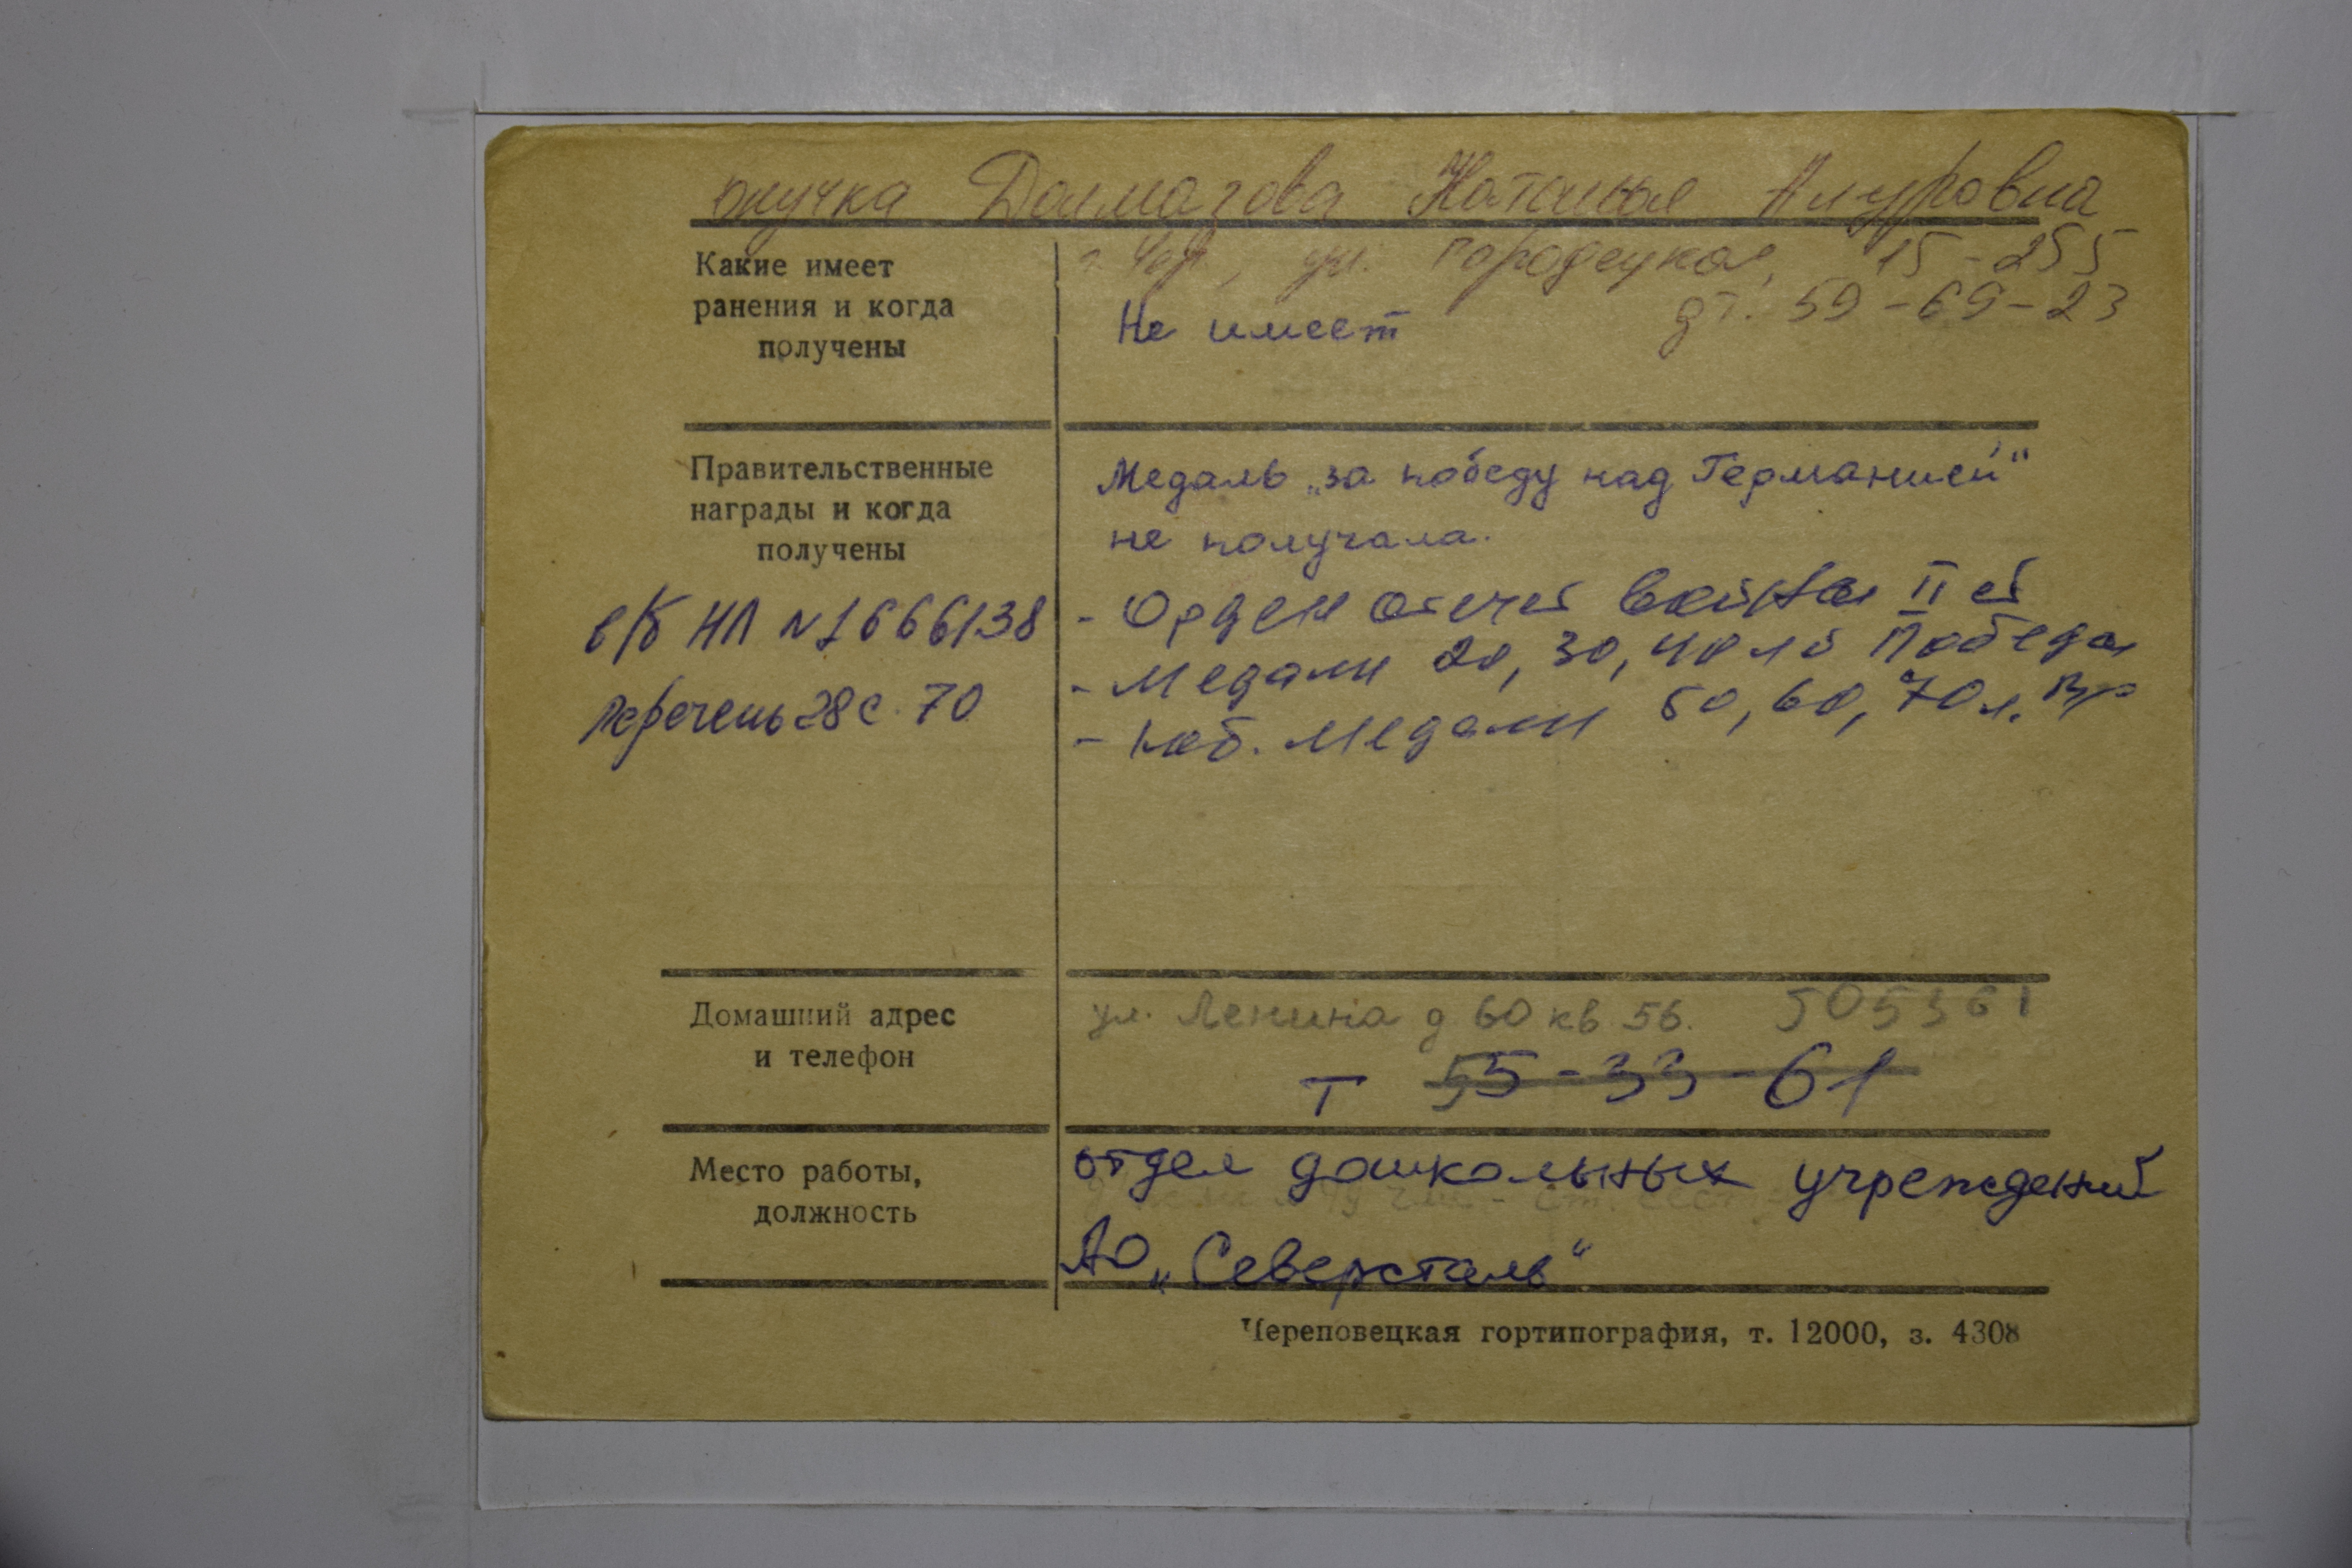 внучка Долмагова Наталья Амуровна
г. Чер, ул. Городецкая, 15-255
Какие имеет
ранения и когда
получены
Не имеет
дт. 59-69-23
Правительственные
награды и когда
получены
Медаль „за победу над Германией“
не получала.
- Орден отеч вой II ст
- Медали 20, 30, 40 л Победы
- юб. медали 50, 60, 70 л.
в/б НП №1666138
Перечень 28 с. 70
Домашний адрес
и телефон
ул. Ленина д 60 кв 56. 505361
т 55-33-61
Место работы,
должность
отдел дошкольных учреждений
АО „Северсталь“
Череповецкая гортипография, т. 12000, з. 4308